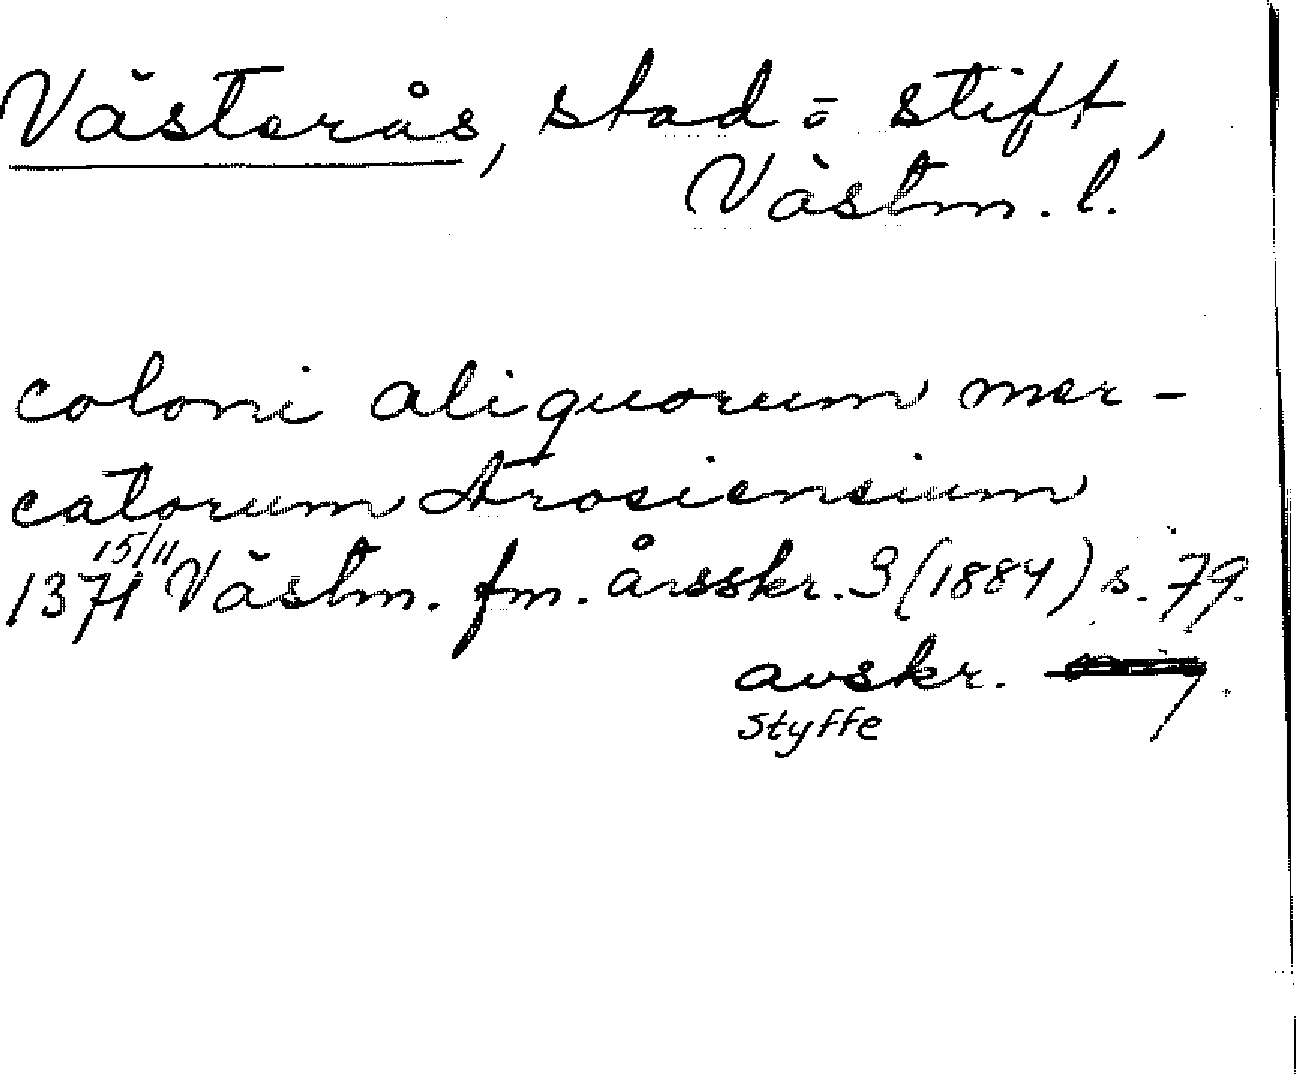 Västerås, stad o stift,
Västm. l.
coloni aliquorum mer-
catorum Arosiensium
1371 15/11 Västm. fm. årsskr. 3 (1884) s. 79.
avskr.
Styffe